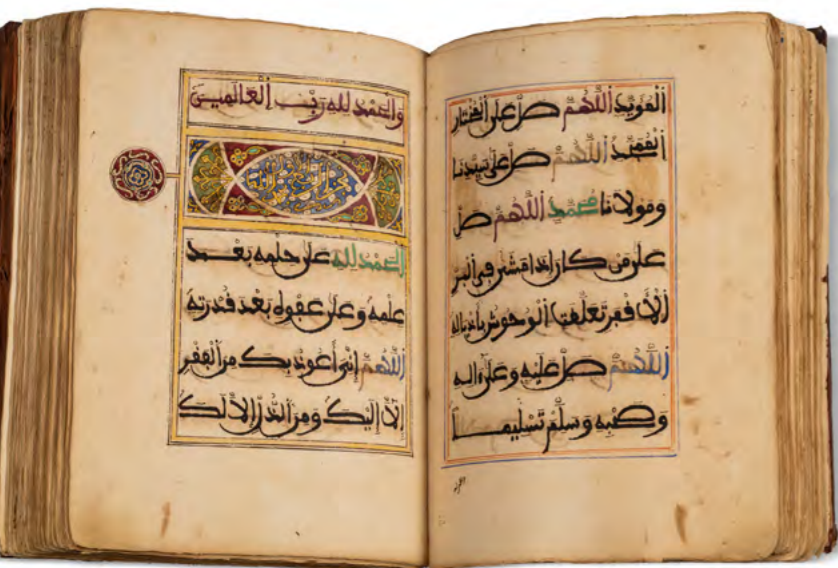 المؤيد اللهم صل على المختار
الممجد اللهم صل على سيدنا
ومولانا محمد اللهم صل
على من كان إذا مشى في البر
الأقفر تعلقت الوحوش بأذياله
اللهم صل عليه وعلى ءاله
وصحبه وسلم تسليما
والحمد لله رب العالمين
الحمد لله على حلمه بعد
علمه وعلى عفوه بعد قدرته
اللهم إني أعوذ بك من الفقر
إلا إليك ومن الذل إلا لك